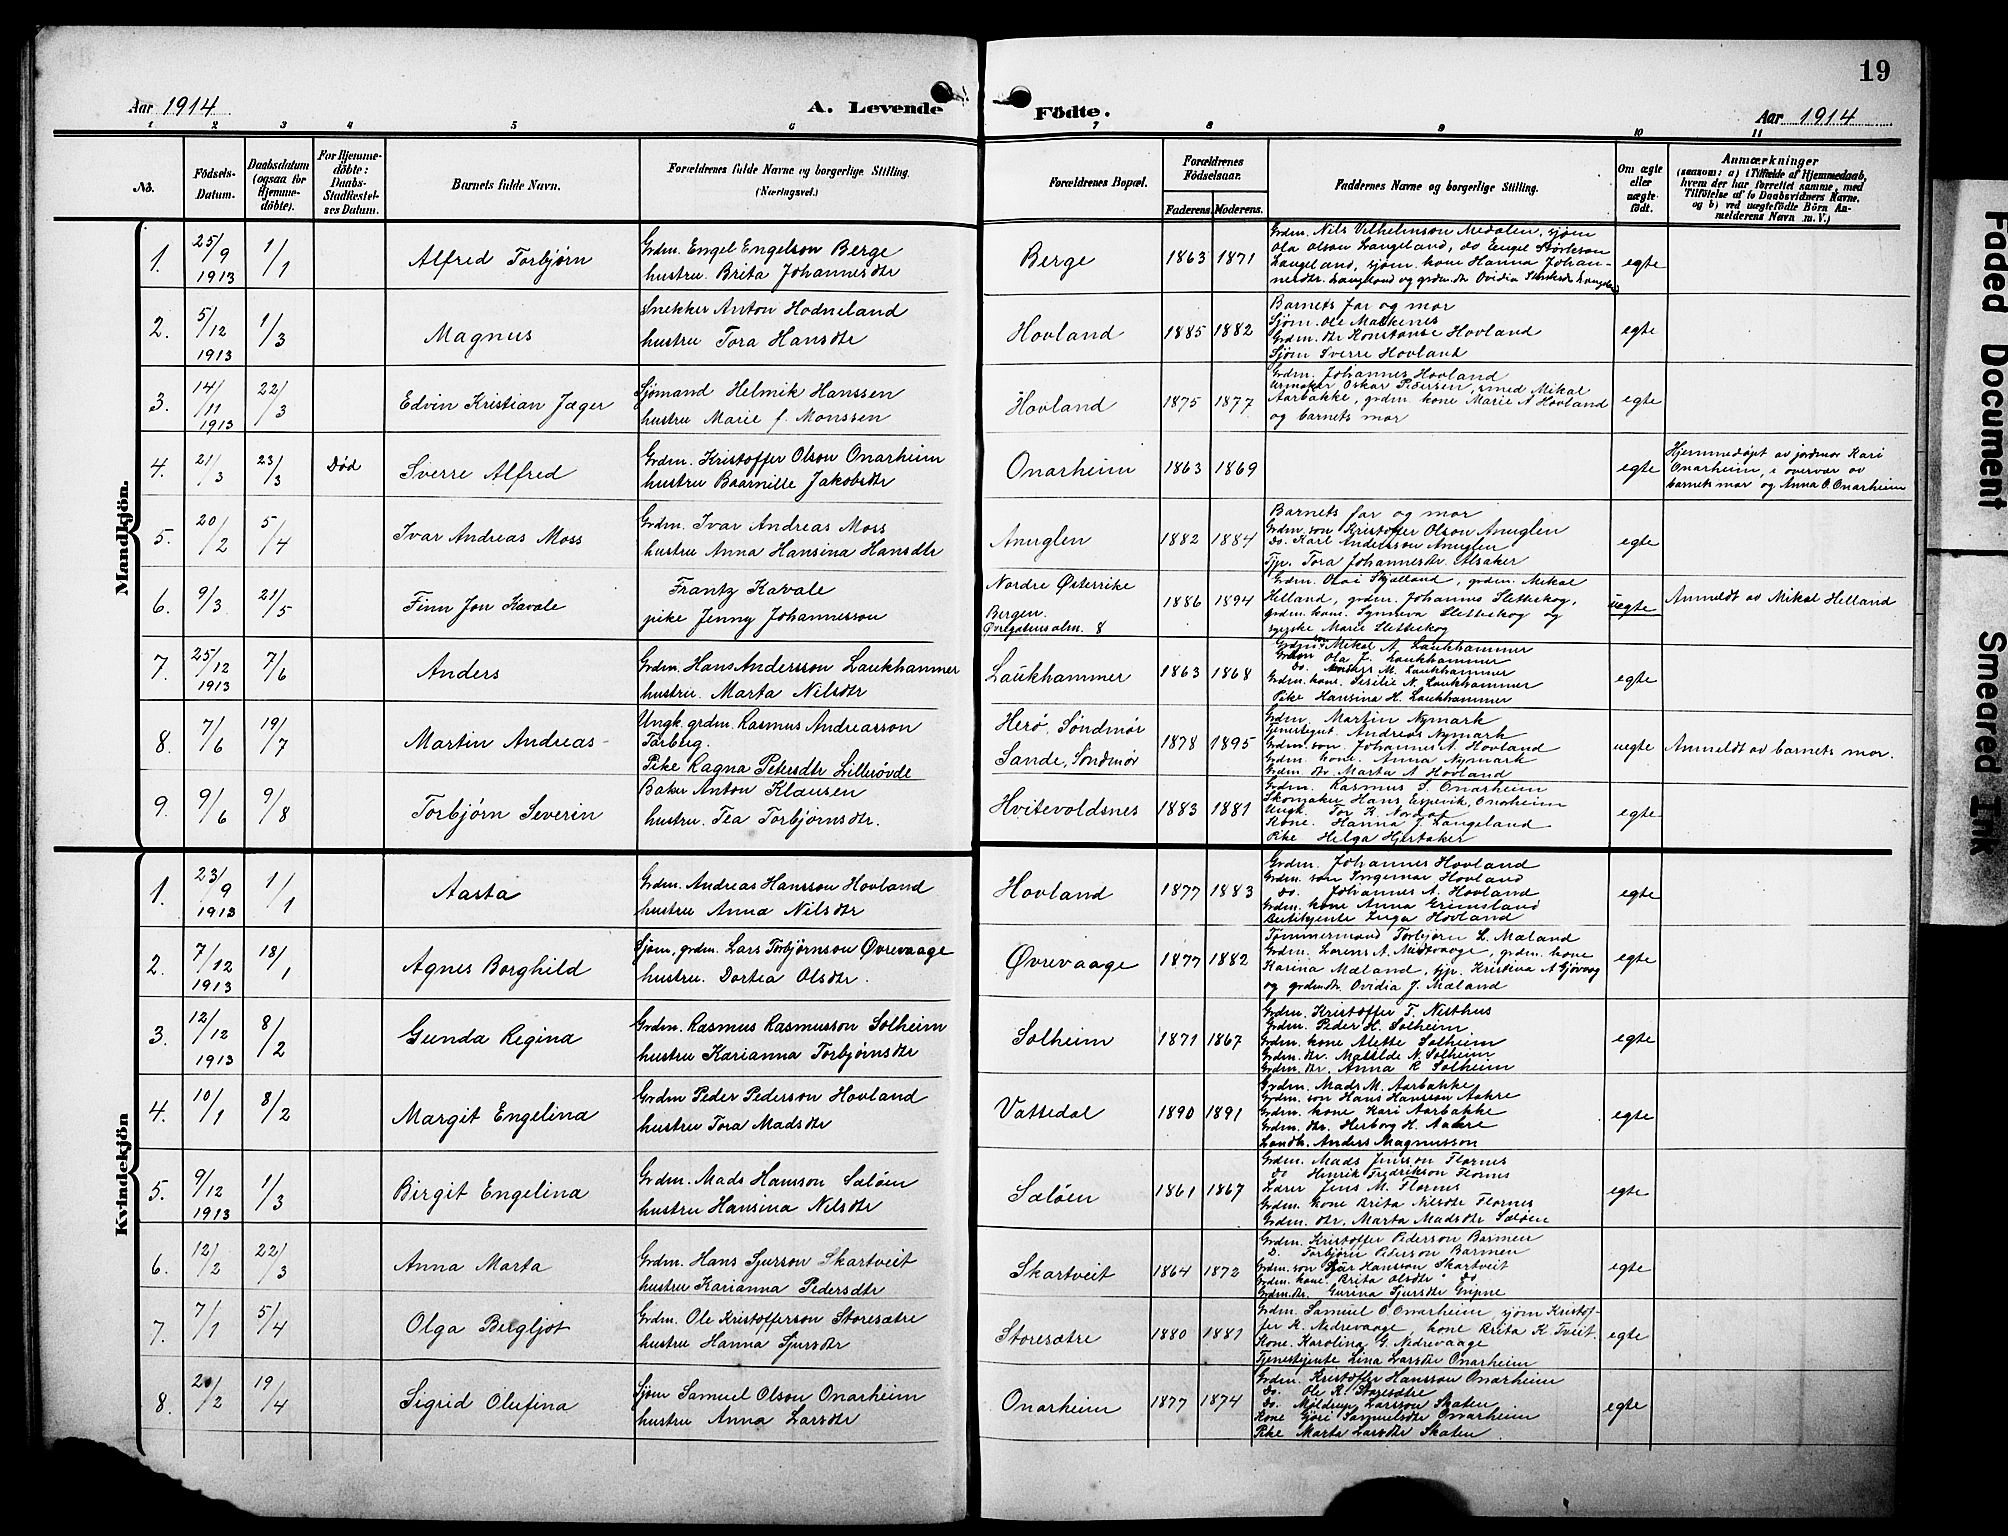 19
Aar 1914
A. Levende Födte.
Aar 1914
1 2 3 4 5 6 7 8 9 10 11
No.
Födsels-Datum.
Daabsdatum (ogsaa for Hjemme-döbte).
For Hjemme-döbte: Daabs-Stadfæstel-ses Datum.
Barnets fulde Navn.
Forældrenes fulde Navne og borgerlige Stilling. (Næringsvei.)
Forældrenes Bopæl.
Forældrenes Födselsaar.
Faderens. Moderens.
Faddernes Navne og borgerlige Stilling.
Om ægte eller uægte födt.
Anmærkninger
(saasom: a) i Tilfælde af Hjemmedaab, hvem der har forrettet samme, med Tilföielse af to Daabsvidners Navne. og b) ved uægtefödte Börn An-melderens Navn m. V.)
Mandkjön.
1. 25/9 1913 1/1 Alfred Torbjørn
Grdm. Engel Engelson Berge
hustru Brita Johannesdtr
Berge 1863 1871
Grdm. Nils Vilhelmson Medalen, sjøm
Ola Olson Langeland, do Engel Størkson
Langeland, sjøm. kone Hanna Johan-
nesdtr. Langeland og grdm. dtr Ovidia
egte
2. 5/12 1913 1/3 Magnus
Snekker Anton Hodneland
hustru Tora Hansdtr
Hovland 1885 1882
Barnets far og mor
Sjøm. Ole Malkenes
Grdm. dtr Konstanse Hovland
Sjøm Sverre Hovland
egte
3. 14/11 1913 22/3 Edvin Kristian Jæger
Sjømand Helmik Hanssen
hustru Marie f. Monssen
Hovland 1875 1877
Grdm. Johannes Hovland
Urmaker Oskar Pedersen, smed Mikal
Aarbakke, grdm. kone Marie A Hovland
og barnets mor
egte
4. 21/3 23/3 Død Sverre Alfred
Grdm. Kristoffer Olson Onarheim
hustru Baarnille Jakobsdtr
Onarheim 1863 1869
egte
Hjemmedøpt av jordmor Kari
Onarheim, i overvær av
barnets mor og Anna O. Onarheim
5. 20/2 5/4 Ivar Andreas Moss
Grdm. Ivar Andreas Moss
hustru Anna Hansina Hansdtr
Anuglen 1882 1884
Barnets far og mor
Grdm. son Kristoffer Olson Anuglen
Do. Karl Andersson Anuglen
Tjp. Tora Johannesdtr. Alsaker
egte
6. 9/3 21/5 Finn Jon Kavale
Frantz Kavale
pike Jenny Johannesson
Nordre Østerrike
Bergen.
Øvregatensalm. 8
1886 1894
Grdm. Olai Skjelland, grdm. Mikal
Helland, grdm. Johannes Slettskog,
grdm. kone. Synneva Slettskog og
sypike Marie Slettskog
uegte
Anmeldt av Mikal Helland
7. 25/12 1913 7/6 Anders
Grdm. Hans Andersson Laukhammer
hustru. Marta Nilsdtr
Laukhammer 1863 1868
Grdm. son Mikal A. Laukhammer
Ola J. Laukhammer
Do. Anders M. Laukhammer
Grdm. kone. Sesilie N. Laukhammer
Pike Hansina H. Laukhammer
egte
8. 7/6 19/7 Martin Andreas
Ungk. grdm. Rasmus Andreasson
Torberg.
Pike Ragna Petersdtr Lillerøvde
Herø, Søndmør
Sande, Søndmør
1878 1895
Grdm. Martin Nymark
Tjenestegut Andreas Nymark
Grdm. son. Johannes A. Hovland
Grdm. kone. Anna Nymark
Grdm. dtr. Marta A Hovland
uegte
Anmeldt av barnets mor.
9. 9/6 9/8 Torbjørn Severin
Baker Anton Klausen
hustru. Tea Torbjørnsdtr.
Hvitevoldsnes 1883 1881
Grdm. Rasmus S. Onarheim
Skomaker Hans Espevik, Onarheim
Ungk. Tor K. Nordal
Kone. Hanna J. Langeland
Pike Helga Hjertaker
egte
Kvindekjön
1. 23/9 1913 1/1 Aasta
Grdm. Andreas Hansson Hovland
hustru Anna Nilsdtr
Hovland 1877 1883
Grdm. Johannes Hovland
Grdm. son Ingemar Hovland
Do. Johannes A. Hovland
Grdm. kone Anna Grimsland
Butikjente Inga Hovland
egte
2. 7/12 1913 18/1 Agnes Borghild
Sjøm, grdm. Lars Torbjørnson Øvrevaage
hustru. Dortea Olsdtr.
Øvrevaage 1877 1882
Tømmermand Torbjørn L. Mæland
Grdm. Lorens A. Midtvaage, grdm. kone
Karina Mæland, tjp. Kristina A Gjøvaag
og grdmdtr. Ovidia J. Mæland
egte
3. 12/12 1913 8/2 Gunda Regina
Grdm. Rasmus Rasmusson Solheim
hustru Karianna Torbjørnsdtr
Solheim 1871 1867
Grdm. Kristoffer T. Nisthus
Grdm. Peder H. Solheim
Grdm. kone Alette Solheim
Grdm. dtr. Matilde N. Solheim
Grdm. dtr. Anna R Solheim
egte
4. 10/1 8/2 Margit Engelina
Grdm Peder Pederson Hovland
hustru Tora Madsdtr
Vattedal 1890 1891
Grdm. Mads M. Aarbakke
Grdm. son Hans Hansson Aakre
Grdm. kone Kari Aarbakke
Grdm. dtr. Herborg H. Aakre
Landh. Anders Magnusson
egte
5. 9/12 1913 1/3 Birgit Engelina
Grdm. Mads Hansson Sæløen
hustru Hansina Nilsdtr
Sæløen 1861 1867
Grdm. Mads Jensson Flornes
Do Henrik Fredrikson Flornes
Lærer Jens M. Flornes
Grdm. kone Brita Nilsdtr Flornes
Grdm. dtr. Marta Madsdtr Sæløen
egte
6. 12/2 22/3 Anna Marta
Grdm. Hans Sjursson Skartveit
hustru Karianna Pedersdtr
Skartveit 1864 1872
Grdm. Kristoffer Pederson Barmen
D. Torbjørn Pederson Barmen
Grdm. son Sjur Hansson Skartveit
Grdm. kone. Brita Olsdtr Do
Grdm. dtr. Gurina Sjursdtr
egte
7. 7/1 5/4 Olga Bergljot
Grdm. Ole Kristofferson Storesætre
hustru Hanna Sjursdtr
Storesætre 1880 1881
Grdm. Samuel O. Onarheim, sjøm Kristof-
fer K. Nedrevaage kone Brita K Tveit.
Kone. Karolina G. Nedrevaage
Tjenestjente Lina Larsdtr Onarheim
egte
8. 20/2 19/4 Sigrid Olufina
Sjøm Samuel Olson Onarheim
hustru Anna Larsdtr
Onarheim 1877 1874
Grdm. Kristoffer Hansson Onarheim
Do. Ole K. Storesætre
Do. Møldrup Larsson Skaten
Kone Gjøri Samuelsdtr Onarheim
Pike Marta Larsdtr Skaten
egte
Faded Document
Smeared Ink